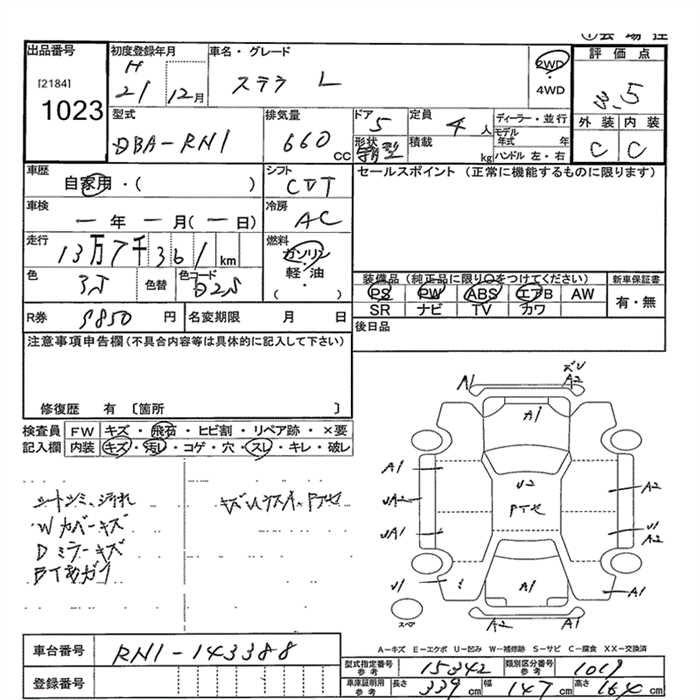 出品番号 初度登録年月 車名・グレード 2WD 評価点
[2184] H ステラ L ・ 3.5
1023 21 12月 4WD
外装 内装
型式 排気量 ドア 5 定員 4 人 ディーラー・並行 C C
DBA-RN1 660 cc 形状 積載 kg モデル年式 年
ハンドル 左・右
車歴 シフト セールスポイント (正常に機能するものに限ります)
自家用・( ) CVT
車検 冷房
ー 年 ー 月 (ー 日) AC
走行 燃料
13万7千361 km ガソリン
・
軽油
・
( )
色 色替 色コード 装備品 (純正品に限り〇をつけてください) 新車保証書
D25 PS PW ABS エアB AW 有・無
SR ナビ TV カワ
R券 9850 円 名変期限 月 日 後日品
注意事項申告欄(不具合内容等は具体的に記入して下さい)
修復歴 有 〔箇所 〕
検査員 FW キズ・飛石・ヒビ割・リペア跡・×要
記入欄 内装 キズ・汚れ・コゲ・穴・スレ・キレ・破レ
シートシミ、汚れ
Wカバーキズ
Dミラーキズ
A1 A2
A1
A1 U2 A2
UA2
UA1 U1
A2
U1 A1 A1
スペア A2 A1
A-キズ E-エクボ U-凹み W-補修跡 S-サビ C-腐食 XX-交換済
車台番号 RN1-143388
登録番号
型式指定番号 参考 15342 類別区分番号 参考 1019
車庫証明用 参考 長さ 339 cm 幅 147 cm 高さ 164 cm